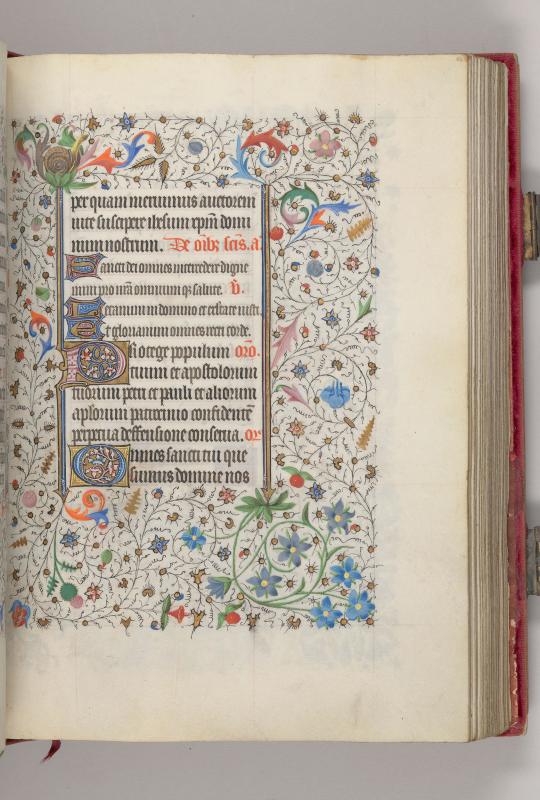 per quam meruimus auctorem
vite suscipere ihesum xpm domi
num nostrum. De oib3 scis. a.
Sancti dei omnes intercedere digne
mini pro nra omnium q3 salute. v.
Letamini in domino et exultate iusti.
Et gloriamini omnes recti corde.
Protege populum oro.
tuum et apostolorum
tuorum petri et pauli et aliorum
aplorum patrocinio confidente
perpetua deffensione conserva. or
Omnes sancti tui que
sumus domine nos